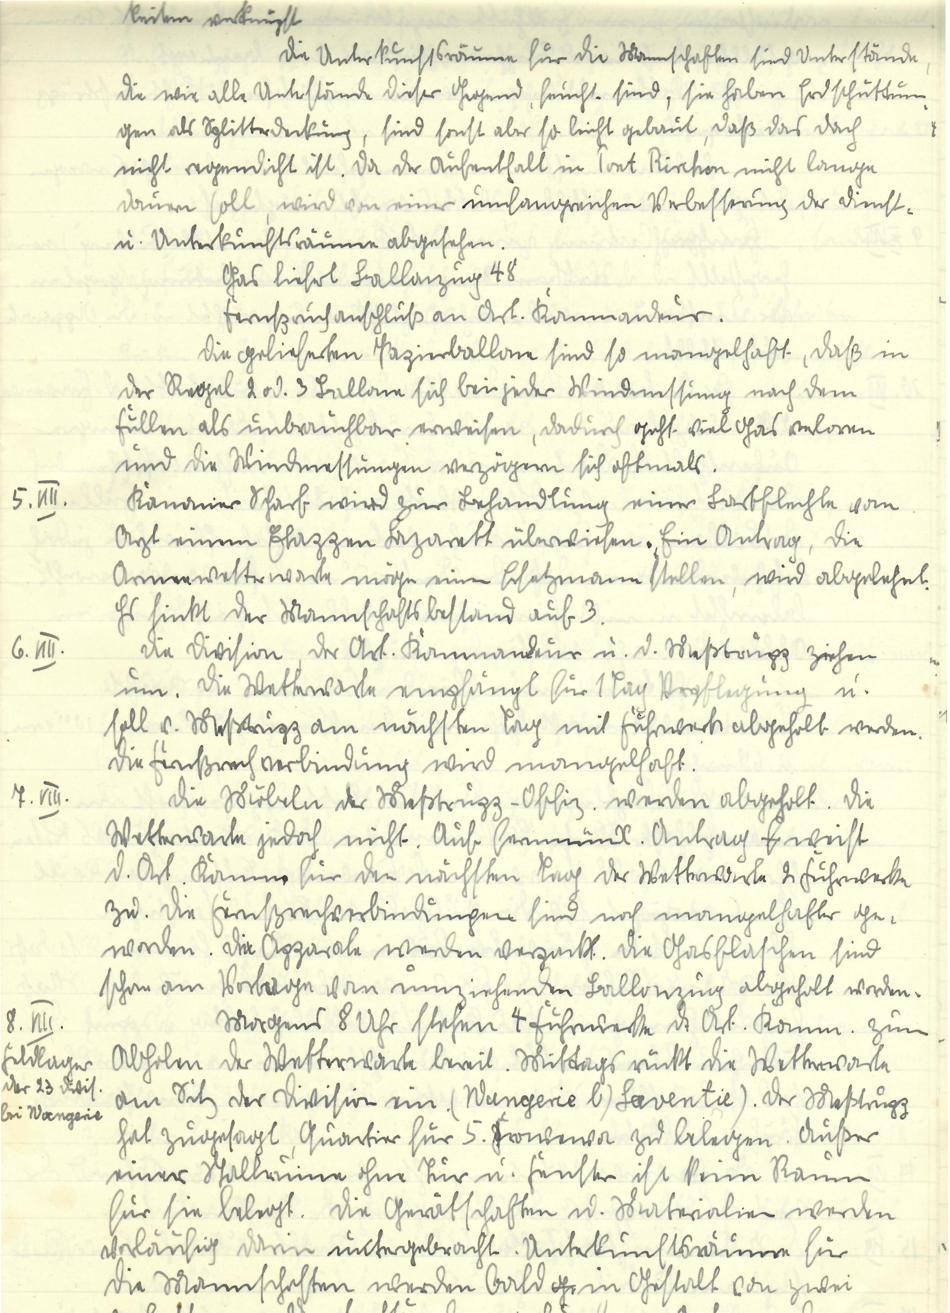 keiten verknüpft
Die Unterkunftsräume für die Mannschaften sind Unterstände,
die wie alle Unterstände dieser Gegend, feucht sind, sie haben Erdschüttun-
gen als Splitterdeckung, sind sonst aber so leicht gebaut, daß das Dach
nicht regendicht ist. Da der Aufenthalt in Pont Rirchon nicht lange
dauern soll, wird von einer umfangreichen Verbesserung der Dienst-
u. Unterkunftsräume abgesehen.
Gas liefert Ballonzug 48
Fernspruchanschluß an Art. Kommandeur.
Die gelieferten Papierballone sind so mangelhaft, daß in
der Regel 2 od. 3 Ballone sich bei jeder Windmessung nach dem
Füllen als unbrauchbar erweisen, dadurch geht viel Gas verloren
und die Windmessungen verzögern sich oftmals.
5. VIII. Kanonier Scharf wird zur Behandlung einer Bartflechte vom
Arzt einem Etappen Lazarett überwiesen. Ein Antrag, die
Armeewetterwarte möge einen Ersatzmann stellen, wird abgelehnt.
Es sinkt der Mannschaftsbestand auf 3.
6. VIII. Die Division, der Art. Kommandeur u. d. Meßtrupp ziehen
um. Die Wetterwarte empfängt für 1 Tag Verpflegung u.
soll v. Meßtrupp am nächsten Tag mit Fuhrwerk abgeholt werden.
Die Fernsprechverbindung wird mangelhaft.
7. VIII. Die Möbeln der Meßtrupp-Offiz. werden abgeholt. Die
Wetterwarte jedoch nicht. Auf fernmündl. Antrag weist
d. Art. Komm. für den nächsten Tag der Wetterwarte 2 Fuhrwerke
zu. Die Fernsprechverbindungen sind noch mangelhafter ge-
worden. Die Apparate werden verpackt. Die Gasflaschen sind
schon am Vortage vom umziehenden Ballonzug abgeholt worden.
8. VIII. Morgens 8 Uhr stehen 4 Fuhrwerke d. Art. Komm. zum
Feldlager Abholen der Wetterwarte bereit. Mittags rückt die Wetterwarte
der 23 Divis. am Sitz der Division ein. (Wangerie b/ Laventie). Der Meßtrupp
bei Wangerie hat zugesagt, Quartier für 5. Frowewa zu belegen. Außer
einer Stallruine ohne Tür u. Fenster ist kein Raum
für sie belegt. Die Gerätschaften u. Materialien werden
vorläufig darin untergebracht. Unterkunftsräume für
die Mannschaften werden bald in Gestalt von zwei